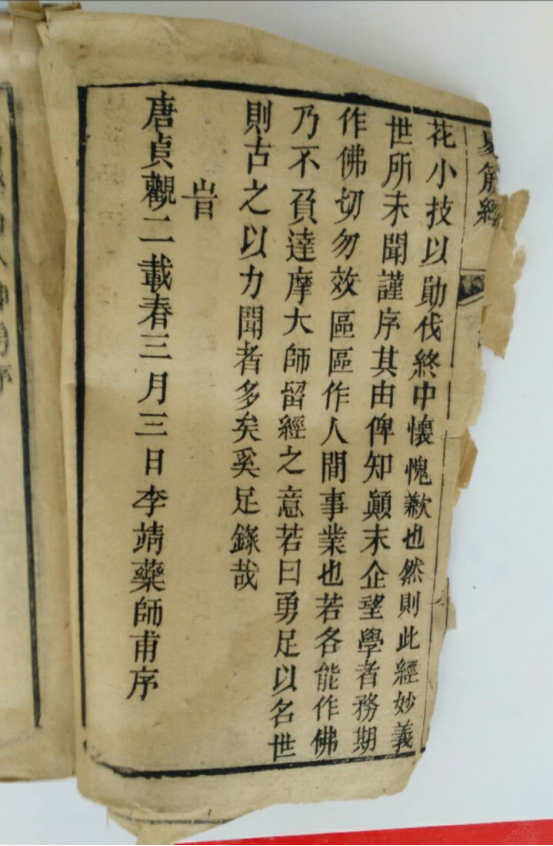 易筋經
花小技以勛伐終中懷愧歉也然則此經妙義
世所未聞謹序其由俾知顛末企望學者務期
作佛切勿效區區作人間事業也若各能作佛
乃不負達摩大師留經之意若曰勇足以名世
則古之以力聞者多矣奚足錄哉
旹
唐貞觀二載春三月三日李靖藥師甫序